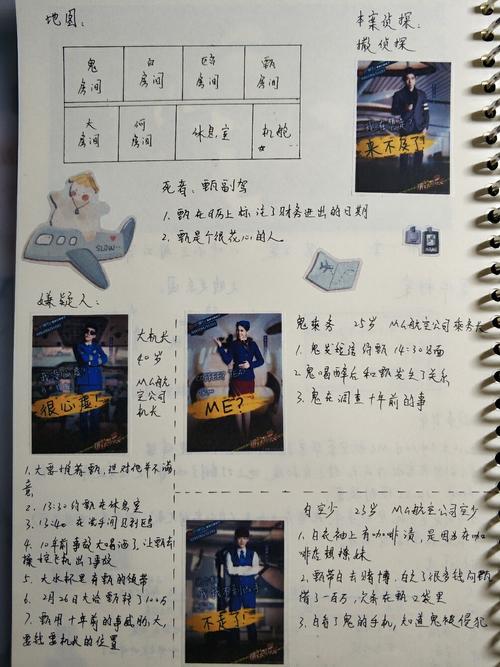 地图:
本案侦探:
撒侦探
鬼
房间
白
房间
欧
房间
甄
房间
大
房间
何
房间
休息室
机舱
来不及了!
死者: 甄副驾
1. 甄在日历上标注了财务进出的日期
2. 甄是个很花心的人。
SLOW
嫌疑人:
很心虚!
大机长
40岁
MG航空公司
机长
ME?
鬼乘务 25岁 MG航空公司乘务长
1. 鬼发短信约甄 14:30见面
2. 鬼喝醉后和甄发生了关系
3. 鬼在调查十年前的事
1. 大要推荐甄,但对他并不满
意
2. 13:30约甄在休息室
3. 13:40 在洗手间见到欧
4. 10年前事故大喝酒了,让甄副
操控飞机出了事故
5. 大水杯里有甄的
6. 2月26日大给甄转了100万
7. 甄用十年前的事威胁大,
要雷机长的位置
不走了!
白空少 23岁 MG航空公司空少
1. 白衣袖上有咖啡渍,是因为在咖
啡店
2. 甄带白去赌博,白欠了很多钱向甄
借了一百万,欠条在甄口袋里
3. 白有了鬼的手机,知道鬼被侵犯